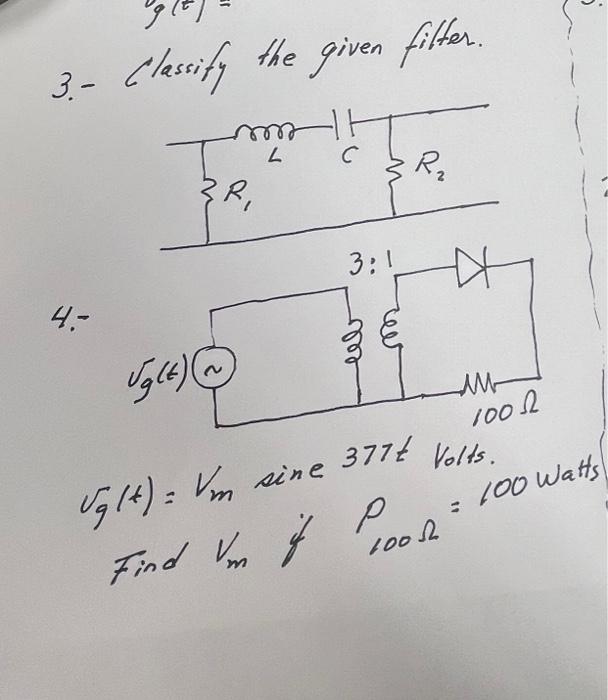 g(t) =
3.- Classify the given filter.
L C
R₁ R₂
3:1
4.-
vg(t) ~
100 Ω
vg(t) = Vm sine 377t Volts.
Find Vm if P100Ω = 100 Watts